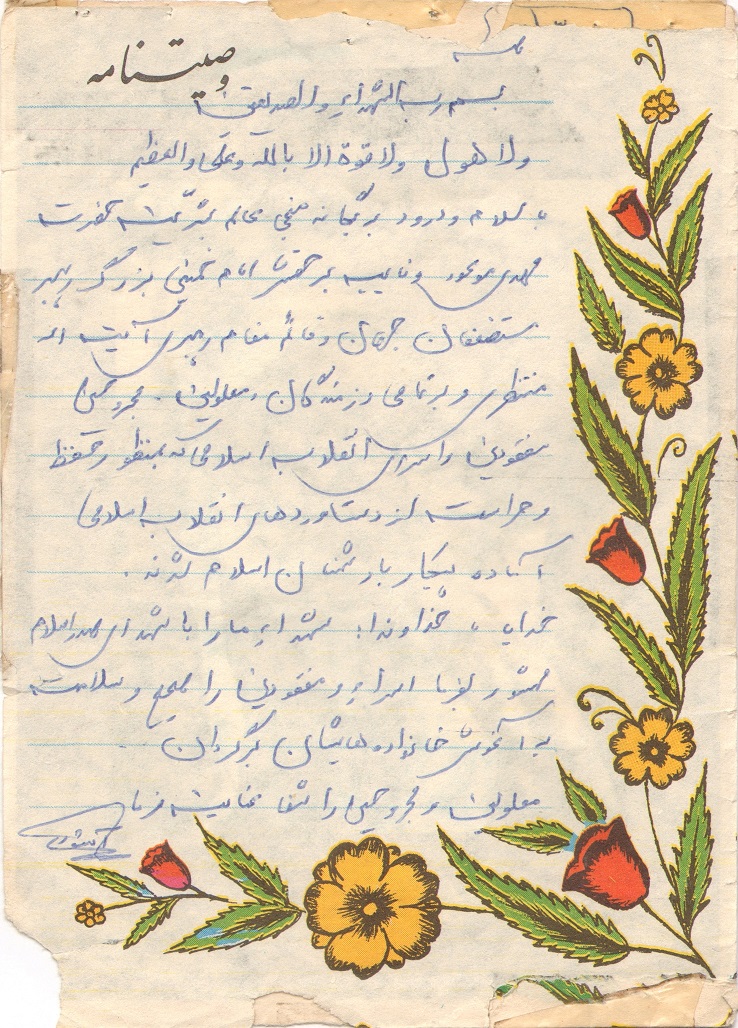 وصیتنامه
بسم رب الشهداء والصدیقین
ولا هول ولا قوة الا بالله وعلی والعظیم
با سلام و درود بر یگانه منجی عالم بشریت حضرت
مهدی موعود و نایب بر حقش امام خمینی بزرگ رهبر
مستضعفان جهان و قائم مقام رهبری آیت اله
منتظری و بر تمامی رزمندگان ، معلولین ، مجروحین
مفقودین و اسرای انقلاب اسلامی که بمنظور حفظ
و حراست از دستاوردهای انقلاب اسلامی
آماده پیکار با دشمنان اسلام شدند .
خدایا ، خداوندا ، شهداء ما را با شهدای صدر اسلام
محشور بفرما اسراء و مفقودین را صحیح و سلامت
به آغوش خانواده هایشان برگردان .
معلولین و مجروحین را شفا عنایت فرما